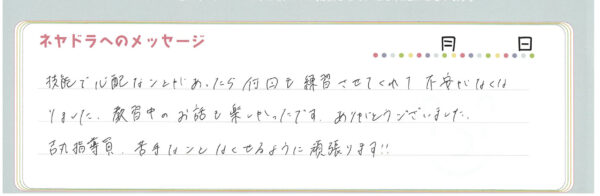 ネヤドラへのメッセージ
月 日
技能で心配なことがあったら何回も練習させてくれて不安がなくな
りました。教習中のお話も楽しかったです。ありがとうございました。
指導員、苦手なことなくせるように頑張ります!!